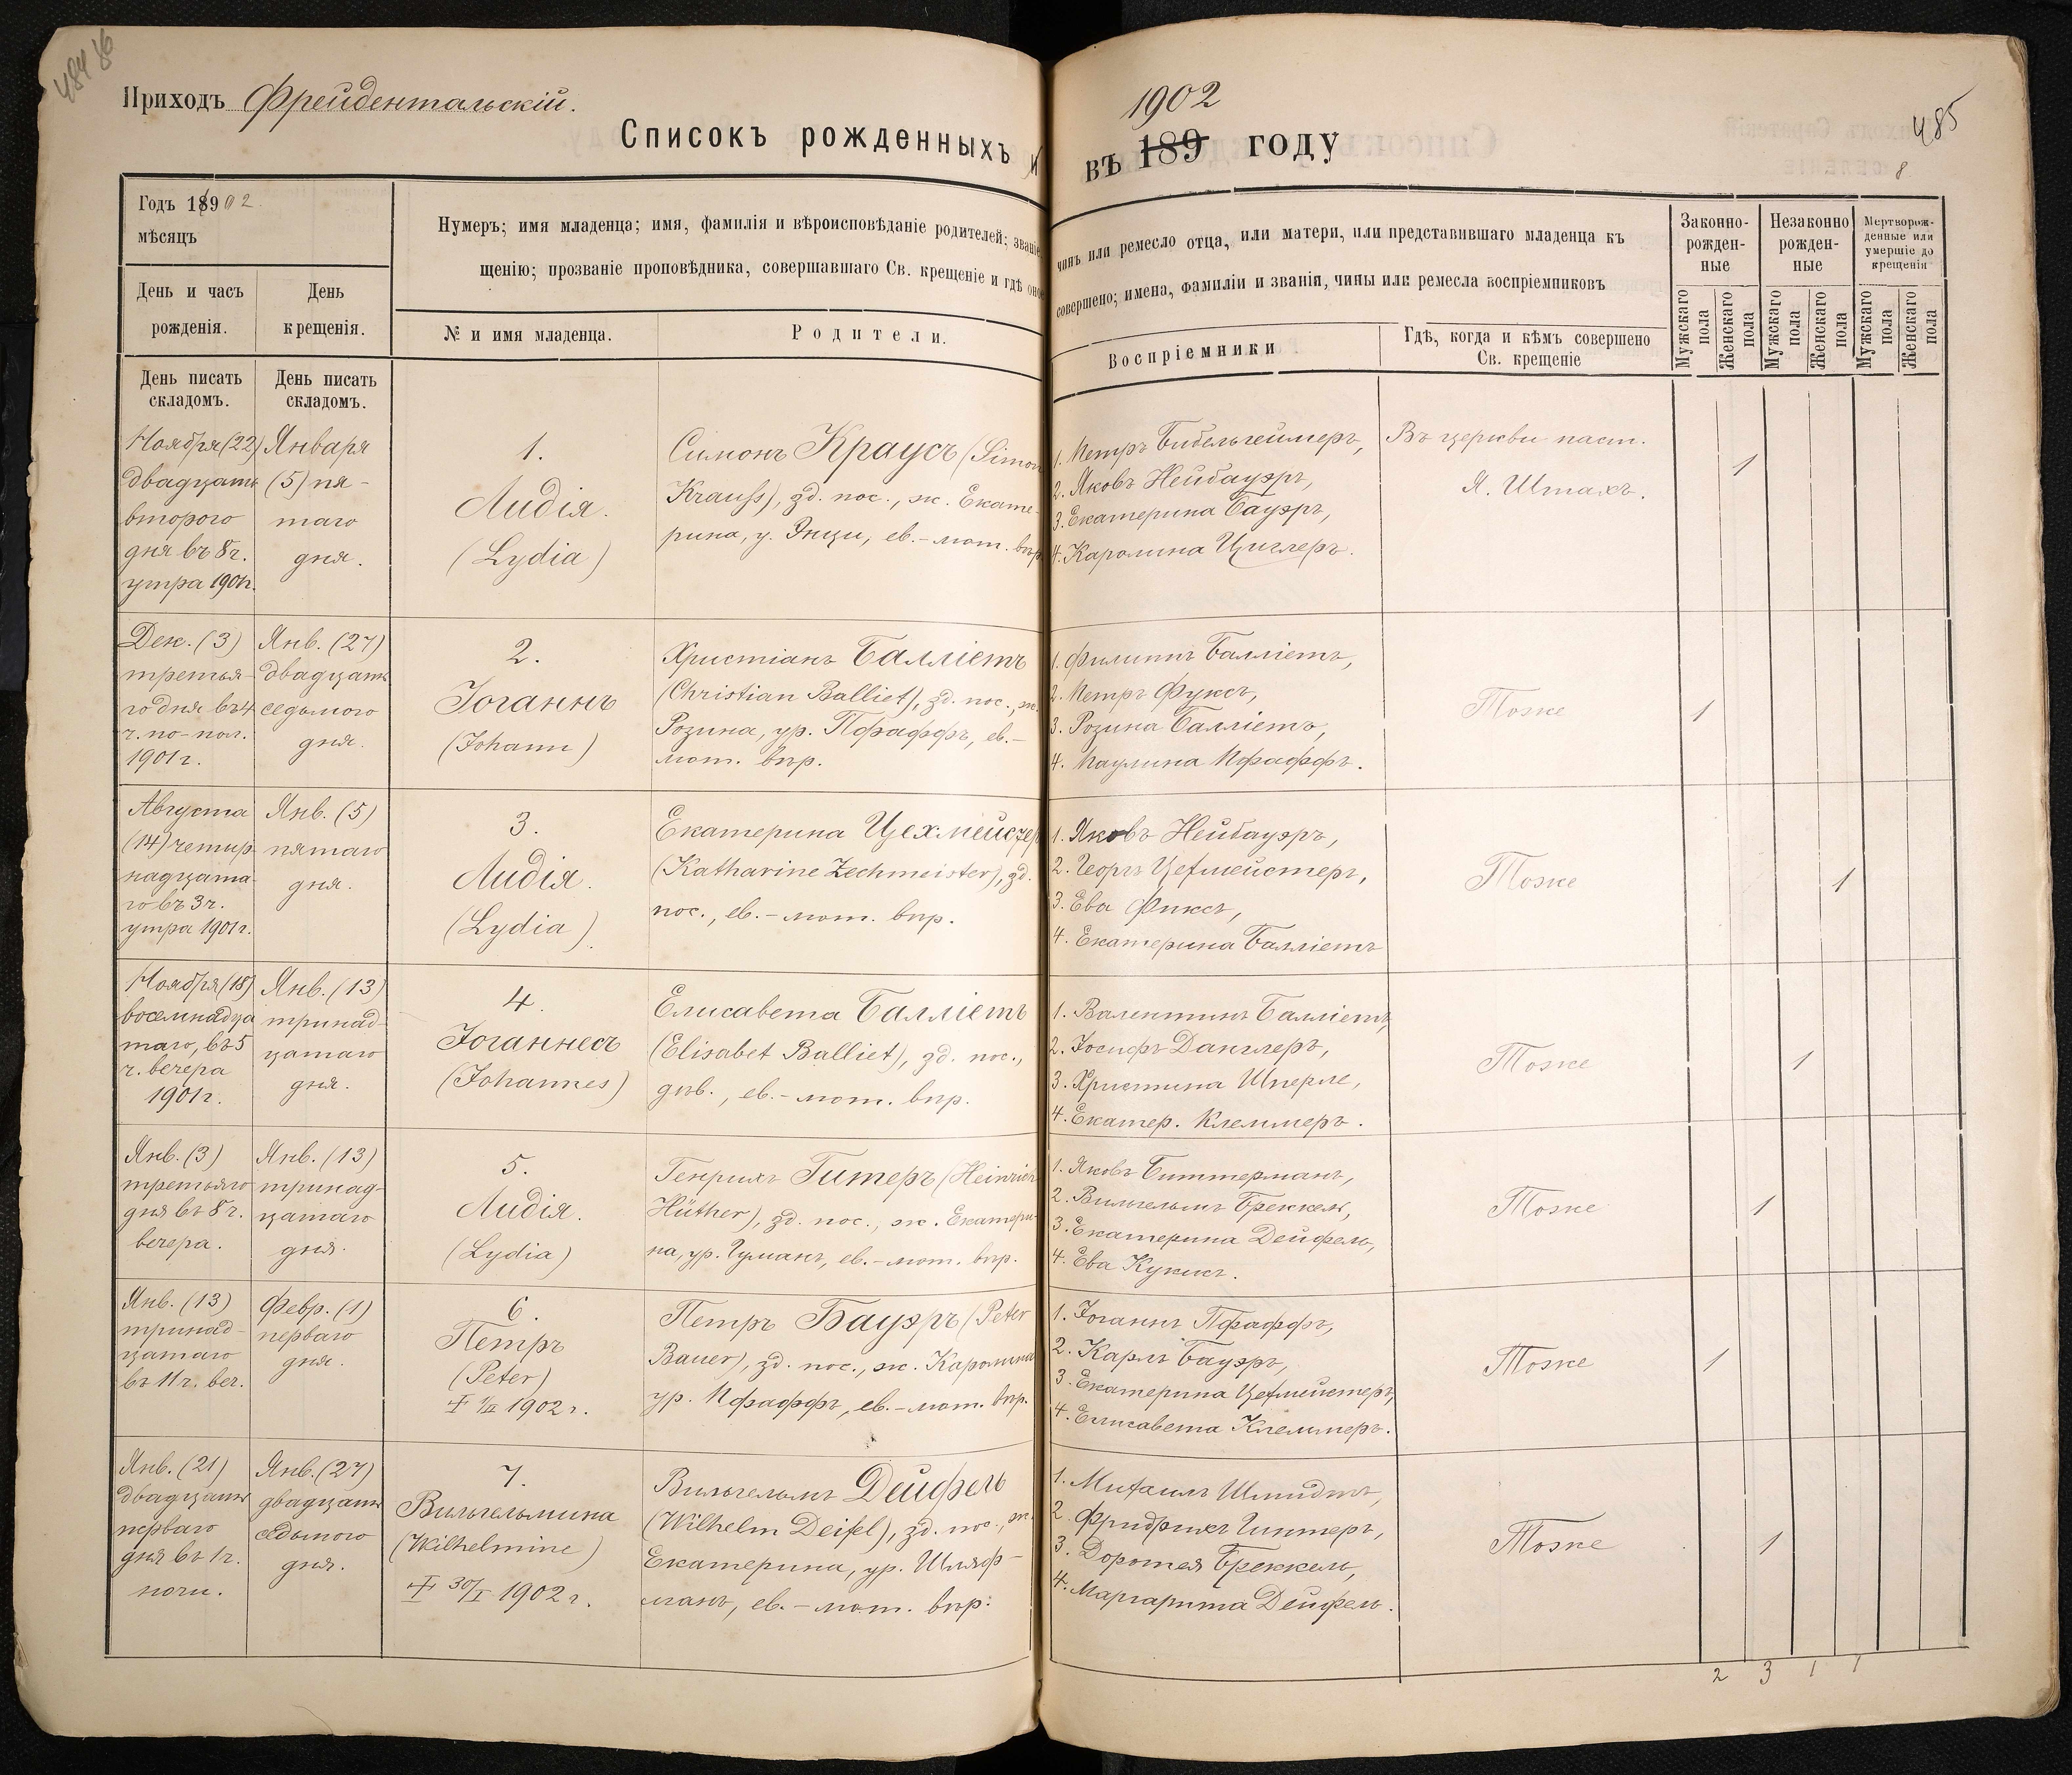 484
Приходъ Фрейдентальскій.
Списокъ рожденныхъ и
Годъ 1902
мѣсяцъ
Нумеръ; имя младенца; имя, фамилія и вѣроисповѣданіе родителей; званіе,
щенію; прозваніе проповѣдника, совершавшаго Св. крещеніе и гдѣ оное
День и часъ
рожденія.
День
крещенія.
№ и имя младенца.
Родители.
День писать
складомъ.
День писать
складомъ.
Ноября (22)
двадцать
второго
дня въ 8 ч.
утра 1901 г.
Января
(5) пя-
таго
дня.
1.
Лидія.
(Lydia)
Симонъ Краусъ (Simon
Krauss), зд. пос., ж. Екате-
рина, у. Энци, ев.-лют. вѣр.
Дек. (3)
третья-
го дня въ 4
ч. по-пол.
1901 г.
Янв. (27)
двадцать
седьмого
дня.
2.
Іоганнъ
(Johann)
Христіанъ Балліетъ
(Christian Balliet), зд. пос., ж.
Розина, ур. Пфаффъ, ев.-
лют. вѣр.
Августа
(14) четыр-
надцата-
го въ 3 ч.
утра 1901 г.
Янв. (5)
пятаго
дня.
3.
Лидія.
(Lydia)
Екатерина Цехмейстер
(Katharine Zechmeister), зд.
пос., ев.-лют. вѣр.
Ноября (18)
восемнадца
таго, въ 5
ч. вечера
1901 г.
Янв. (13)
тринад-
цатаго
дня.
4.
Іоганнесъ
(Johannes)
Елисавета Балліетъ
(Elisabet Balliet), зд. пос.,
дѣв., ев.-лют. вѣр.
Янв. (3)
третьяго
дня въ 8 ч.
вечера.
Янв. (13)
тринад-
цатаго
дня.
5.
Лидія.
(Lydia)
Генрихъ Гитеръ (Heinrich
Hüther), зд. пос., ж. Екатери-
на, ур. Гуманъ, ев.-лют. вѣр.
Янв. (13)
тринад-
цатаго
въ 11 ч. веч.
Февр. (1)
перваго
дня.
6.
Петръ
(Peter)
1902 г.
Петръ Бауэръ (Peter
Bauer), зд. пос., ж. Каролина
ур. Пфаффъ, ев.-лют. вѣр.
Янв. (21)
двадцать
перваго
дня въ 1 ч.
ночи.
Янв. (27)
двадцать
седьмого
дня.
7.
Вильгельмина
(Wilhelmine)
☩ 30/I 1902 г.
Вильгельмъ Дейфель
(Wilhelm Deifel), зд. пос., ж.
Екатерина, ур. Шляф-
манъ, ев.-лют. вѣр.
1902
485
8
въ 189 году
чинъ или ремесло отца, или матери, или представившаго младенца къ
совершено; имена, фамиліи и званія, чины или ремесла воспріемниковъ
Воспріемники
Гдѣ, когда и кѣмъ совершено
Св. крещеніе
Законно-
рожден-
ные
Незаконно
рожден-
ные
Мертворож-
денные или
умершіе до
крещенія
Мужскаго
пола
Женскаго
пола
Мужскаго
пола
Женскаго
пола
Мужскаго
пола
Женскаго
пола
1. Петръ Бибельгеймеръ,
2. Яковъ Нейбауэръ,
3. Екатерина Бауэръ,
4. Каролина Циглеръ.
Въ церкви паст.
Я. Штахъ.
1
1. Филиппъ Балліетъ,
2. Петръ Фуксъ,
3. Розина Балліетъ,
4. Паулина Пфаффъ.
Тоже
1
1. Яковъ Нейбауэръ,
2. Георгъ Цехмейстеръ,
3. Ева Фиксъ,
4. Екатерина Балліетъ
Тоже
1
1. Валентинъ Балліетъ,
2. Іосифъ Данглеръ,
3. Христина Шперле,
4. Екатер. Клеммеръ.
Тоже
1
1. Яковъ Биттерманъ,
2. Вильгельмъ Бреккель,
3. Екатерина Дейфель,
4. Ева Куксъ.
Тоже
1
1. Іоганнъ Пфаффъ,
2. Карлъ Бауэръ,
3. Екатерина Цехмейстеръ,
4. Елисавета Клеммеръ.
Тоже
1
1. Михаилъ Шмидтъ,
2. Фридрихъ Гинтеръ,
3. Доротея Бреккель,
4. Маргарита Дейфель.
Тоже
1
2 3 1 1